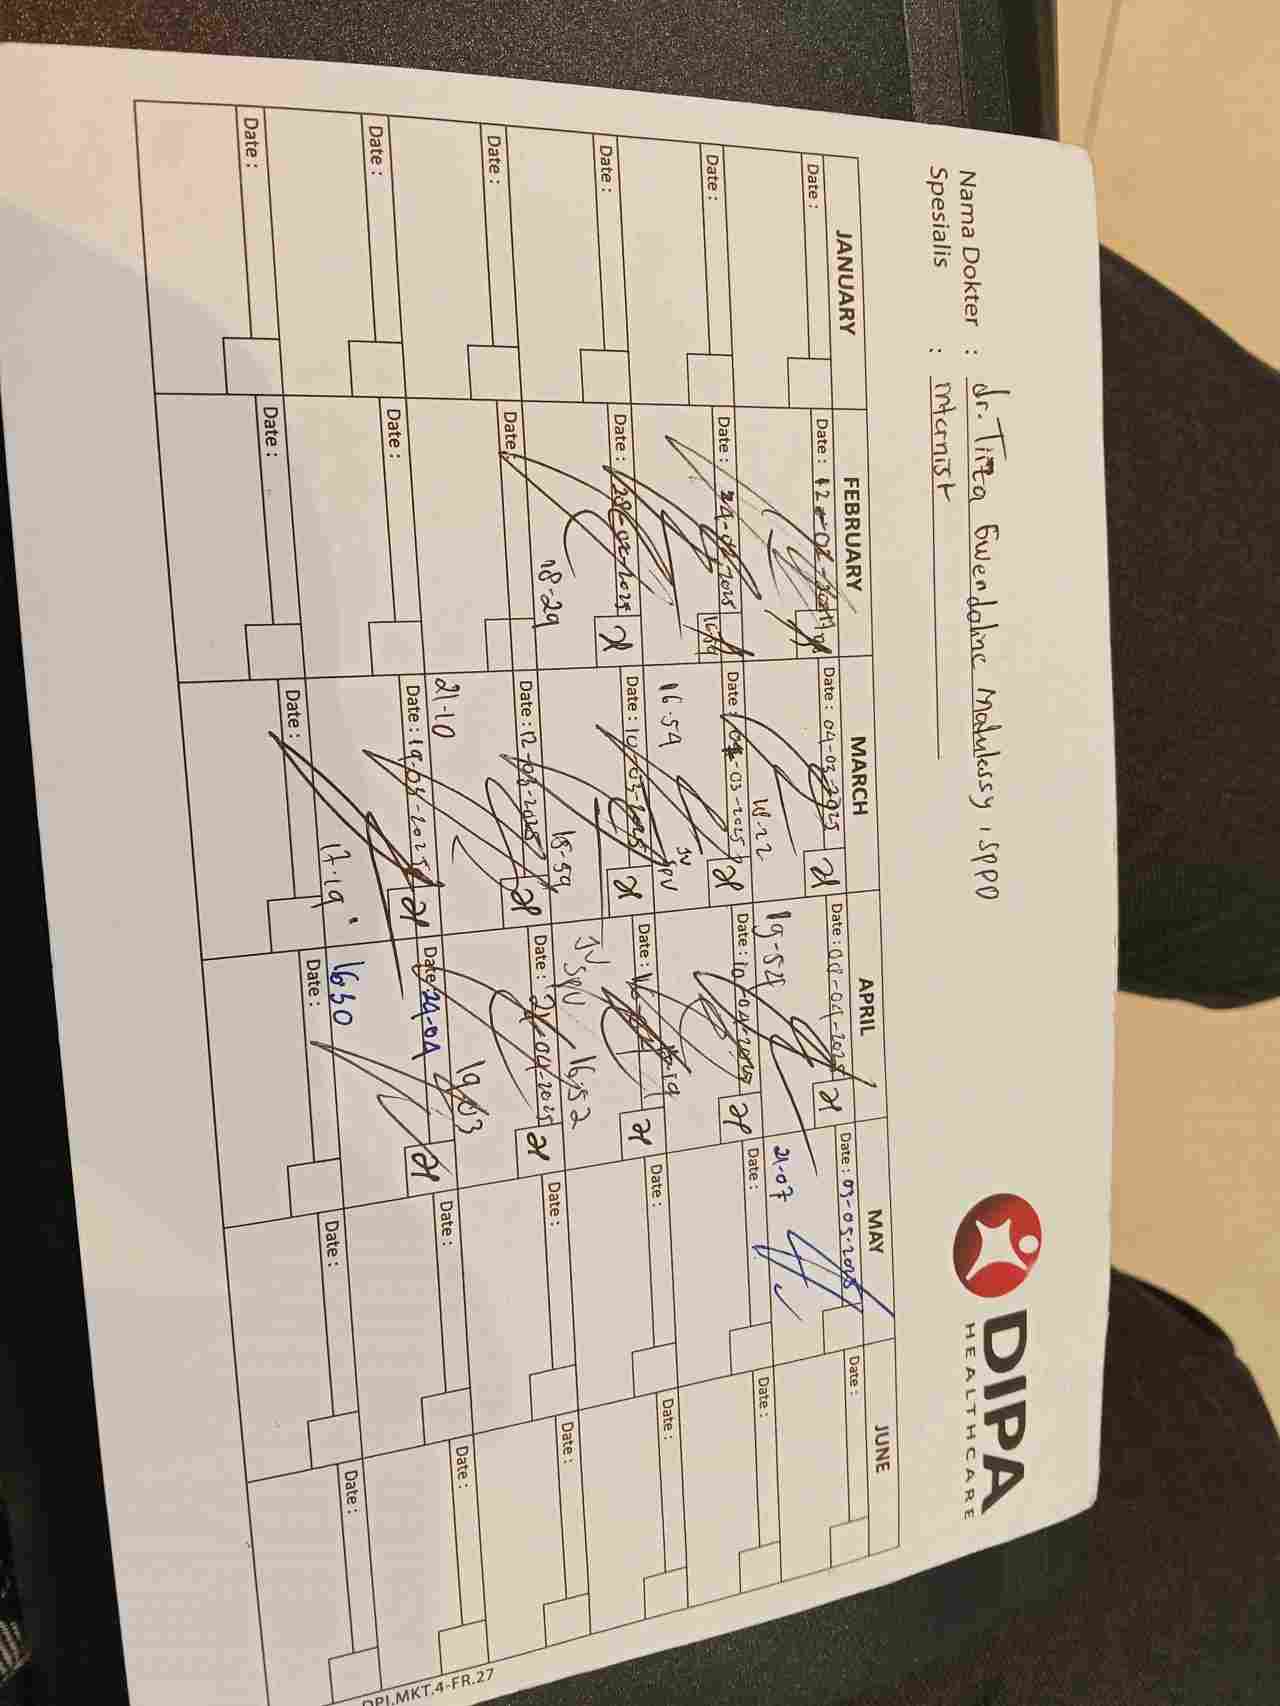 Nama Dokter : dr. Tirza Gwendoline Matulessy, SPPD
Spesialis : Internist
DIPA
HEALTHCARE
JANUARY FEBRUARY MARCH APRIL MAY JUNE
Date : Date : 12-02-2025 Date : 04-03-2025 Date : 08-04-2025 Date : 09-05-2025 Date :
18-22 19-54 21-07
Date : Date : 24-02-2025 Date : 07-03-2025 Date : 10-04-2025 Date : Date :
16.54
JV SPV
Date : Date : 28-02-2025 Date : 10-03-2025 Date : Date : Date :
18-29 18-59 JV SPV 16.52
Date : Date : Date : 12-03-2025 Date : 21-04-2025 Date : Date :
21-10 19.03
Date : Date : Date : 19-03-2025 Date : 24-04 Date : Date :
17.19 1630
Date : Date : Date : Date : Date : Date :
DPI.MKT.4-FR.27